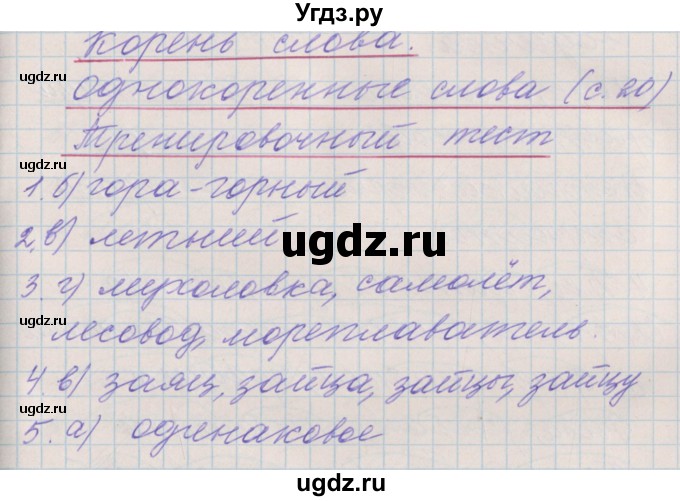 Угдз.ру
Корень слова.
ugdz.ru
ugdz.ru
Однокоренные слова (с. 20)
Тренировочный тест
ugdz.ru
ugdz.ru
1. б) гора - горный
2. в) летний
ugdz.ru
3. г) мухоловка, самолёт,
ugdz.ru
ugdz.ru
лесовод, мореплаватель.
4. в) заяц, зайца, зайцы, зайцу
5. а) одинаковое
ugdz.ru
ugdz.ru
ugdz.ru